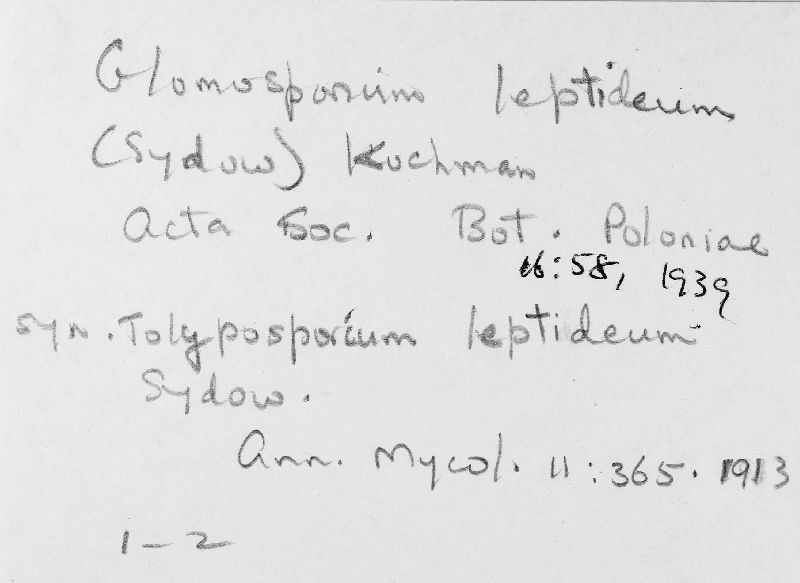 Glomosporium leptideum
(Sydow) Kochman
Acta Soc. Bot. Poloniae
16:58, 1939
syn. Tolyposporium leptideum
Sydow.
Ann. Mycol. 11:365. 1913
1-2